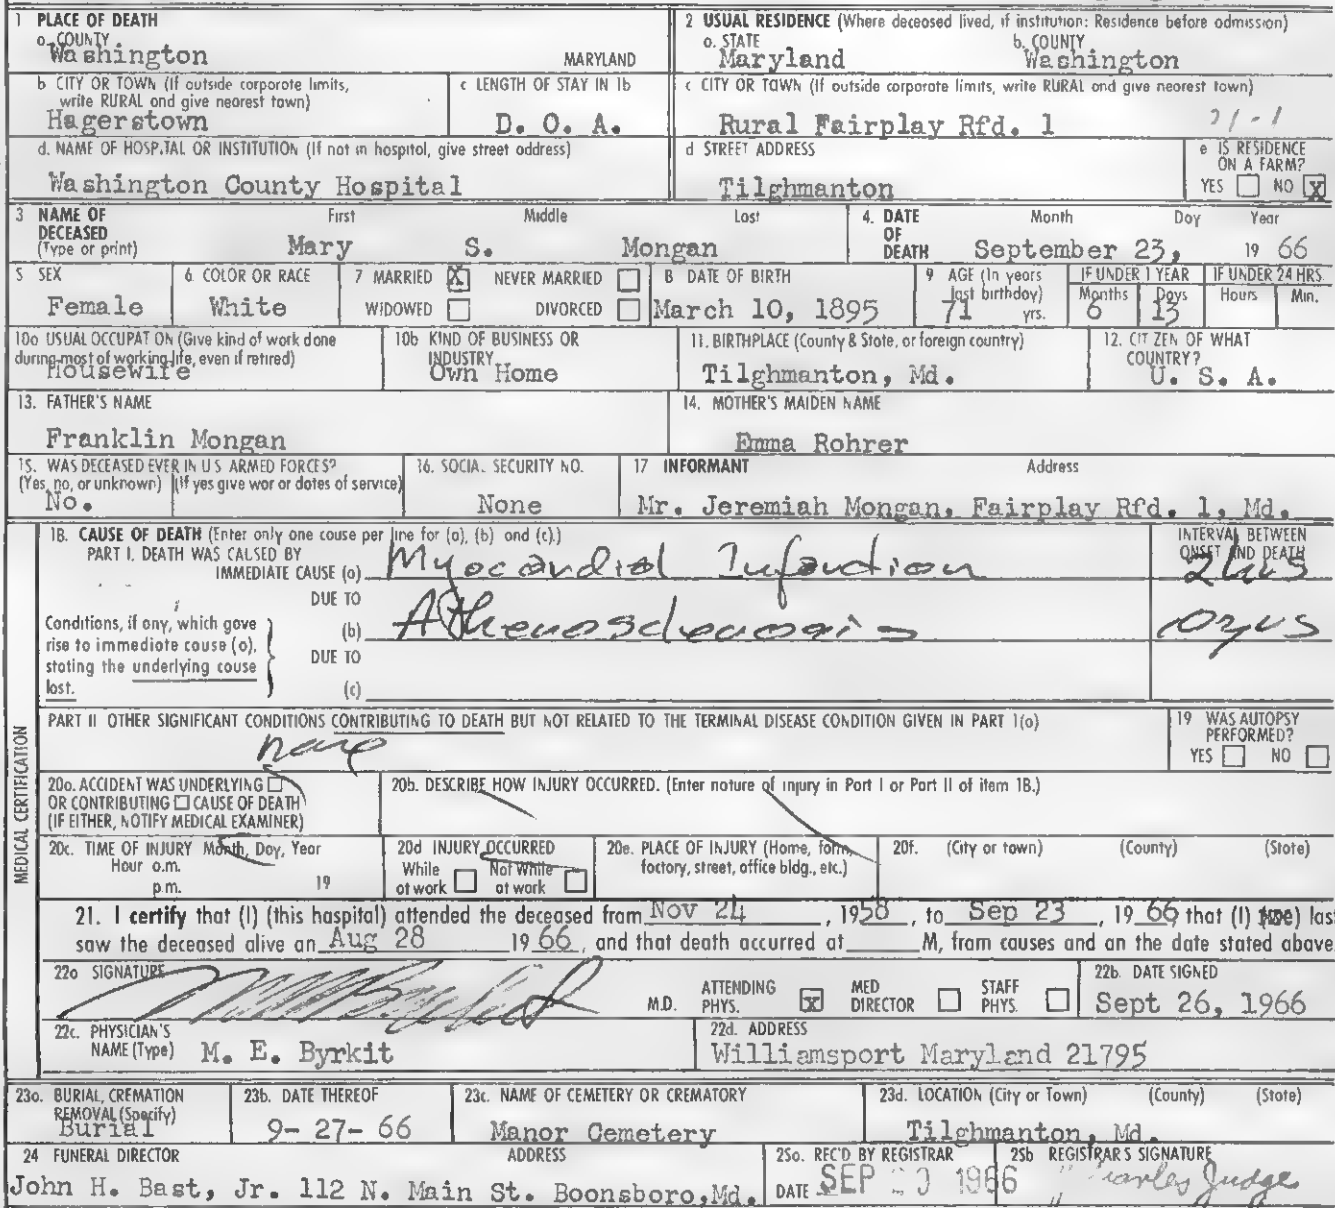 1 PLACE OF DEATH
a. COUNTY
Washington MARYLAND
2 USUAL RESIDENCE (Where deceased lived, if institution: Residence before admission)
a. STATE b. COUNTY
Maryland Washington
b CITY OR TOWN (If outside corporate limits, write RURAL and give nearest town)
Hagerstown
c LENGTH OF STAY IN 1b
D. O. A.
c CITY OR TOWN (If outside corporate limits, write RURAL and give nearest town)
Rural Fairplay Rfd. 1
21-1
d. NAME OF HOSPITAL OR INSTITUTION (If not in hospital, give street address)
Washington County Hospital
d STREET ADDRESS
Tilghmanton
e IS RESIDENCE ON A FARM?
YES NO X
3 NAME OF DECEASED (Type or print)
First Middle Last
Mary S. Mongan
4. DATE OF DEATH
Month Day Year
September 23, 19 66
5 SEX
Female
6 COLOR OR RACE
White
7 MARRIED X NEVER MARRIED
WIDOWED DIVORCED
8 DATE OF BIRTH
March 10, 1895
9 AGE (In years last birthday)
71 yrs.
IF UNDER 1 YEAR
Months Days
6 13
IF UNDER 24 HRS.
Hours Min.
10a USUAL OCCUPATION (Give kind of work done during most of working life, even if retired)
Housewife
10b KIND OF BUSINESS OR INDUSTRY
Own Home
11. BIRTHPLACE (County & State, or foreign country)
Tilghmanton, Md.
12. CITIZEN OF WHAT COUNTRY?
U. S. A.
13. FATHER'S NAME
Franklin Mongan
14. MOTHER'S MAIDEN NAME
Emma Rohrer
15. WAS DECEASED EVER IN U S ARMED FORCES?
(Yes, no, or unknown) (If yes give war or dates of service)
No.
16. SOCIAL SECURITY NO.
None
17 INFORMANT Address
Mr. Jeremiah Mongan, Fairplay Rfd. 1, Md.
MEDICAL CERTIFICATION
18. CAUSE OF DEATH (Enter only one cause per line for (a), (b) and (c).)
PART I. DEATH WAS CAUSED BY
IMMEDIATE CAUSE (a) Myocardial Infarction
INTERVAL BETWEEN ONSET AND DEATH
2 hrs
Conditions, if any, which gave rise to immediate cause (a), stating the underlying cause last.
DUE TO
(b) Atherosclerosis
DUE TO
(c)
PART II OTHER SIGNIFICANT CONDITIONS CONTRIBUTING TO DEATH BUT NOT RELATED TO THE TERMINAL DISEASE CONDITION GIVEN IN PART I(a)
none
19 WAS AUTOPSY PERFORMED?
YES NO
20a. ACCIDENT WAS UNDERLYING
OR CONTRIBUTING CAUSE OF DEATH
(IF EITHER, NOTIFY MEDICAL EXAMINER)
20b. DESCRIBE HOW INJURY OCCURRED. (Enter nature of injury in Part I or Part II of item 18.)
20c. TIME OF INJURY Month, Day, Year
Hour a.m.
p.m. 19
20d INJURY OCCURRED
While at work Not While at work
20e. PLACE OF INJURY (Home, farm, factory, street, office bldg., etc.)
20f. (City or town) (County) (State)
21. I certify that (I) (this hospital) attended the deceased from Nov 24, 1958, to Sep 23, 19 66 that (I) (we) last
saw the deceased alive on Aug 28 19 66, and that death occurred at M, from causes and on the date stated above
22a SIGNATURE
M.D.
ATTENDING PHYS. X MED DIRECTOR STAFF PHYS.
22b. DATE SIGNED
Sept 26, 1966
22c. PHYSICIAN'S NAME (Type) M. E. Byrkit
22d. ADDRESS
Williamsport Maryland 21795
23a. BURIAL, CREMATION REMOVAL (Specify)
Burial
23b. DATE THEREOF
9- 27- 66
23c. NAME OF CEMETERY OR CREMATORY
Manor Cemetery
23d. LOCATION (City or Town) (County) (State)
Tilghmanton, Md.
24 FUNERAL DIRECTOR ADDRESS
John H. Bast, Jr. 112 N. Main St. Boonsboro, Md.
25a. REC'D BY REGISTRAR
DATE SEP 1966
25b REGISTRAR'S SIGNATURE
Charles Judge